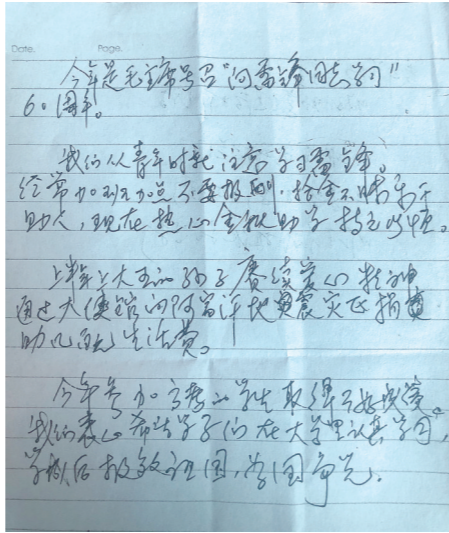 Date. Page.
今年是毛主席号召“向雷锋同志学习”
60周年。
我们从青年时就注意学习雷锋。
经常加班加点不要报酬，拾金不昧乐于
助人，现在热心金秋助学持之以恒。
上年上大五的孙子赓续爱心精神
通过大使馆向阿富汗地震灾区捐
助几百元生活费。
今年参加高考的学生取得了好成绩，
我们衷心希望学子们在大学里认真学习，
学成后报效祖国，为国争光.